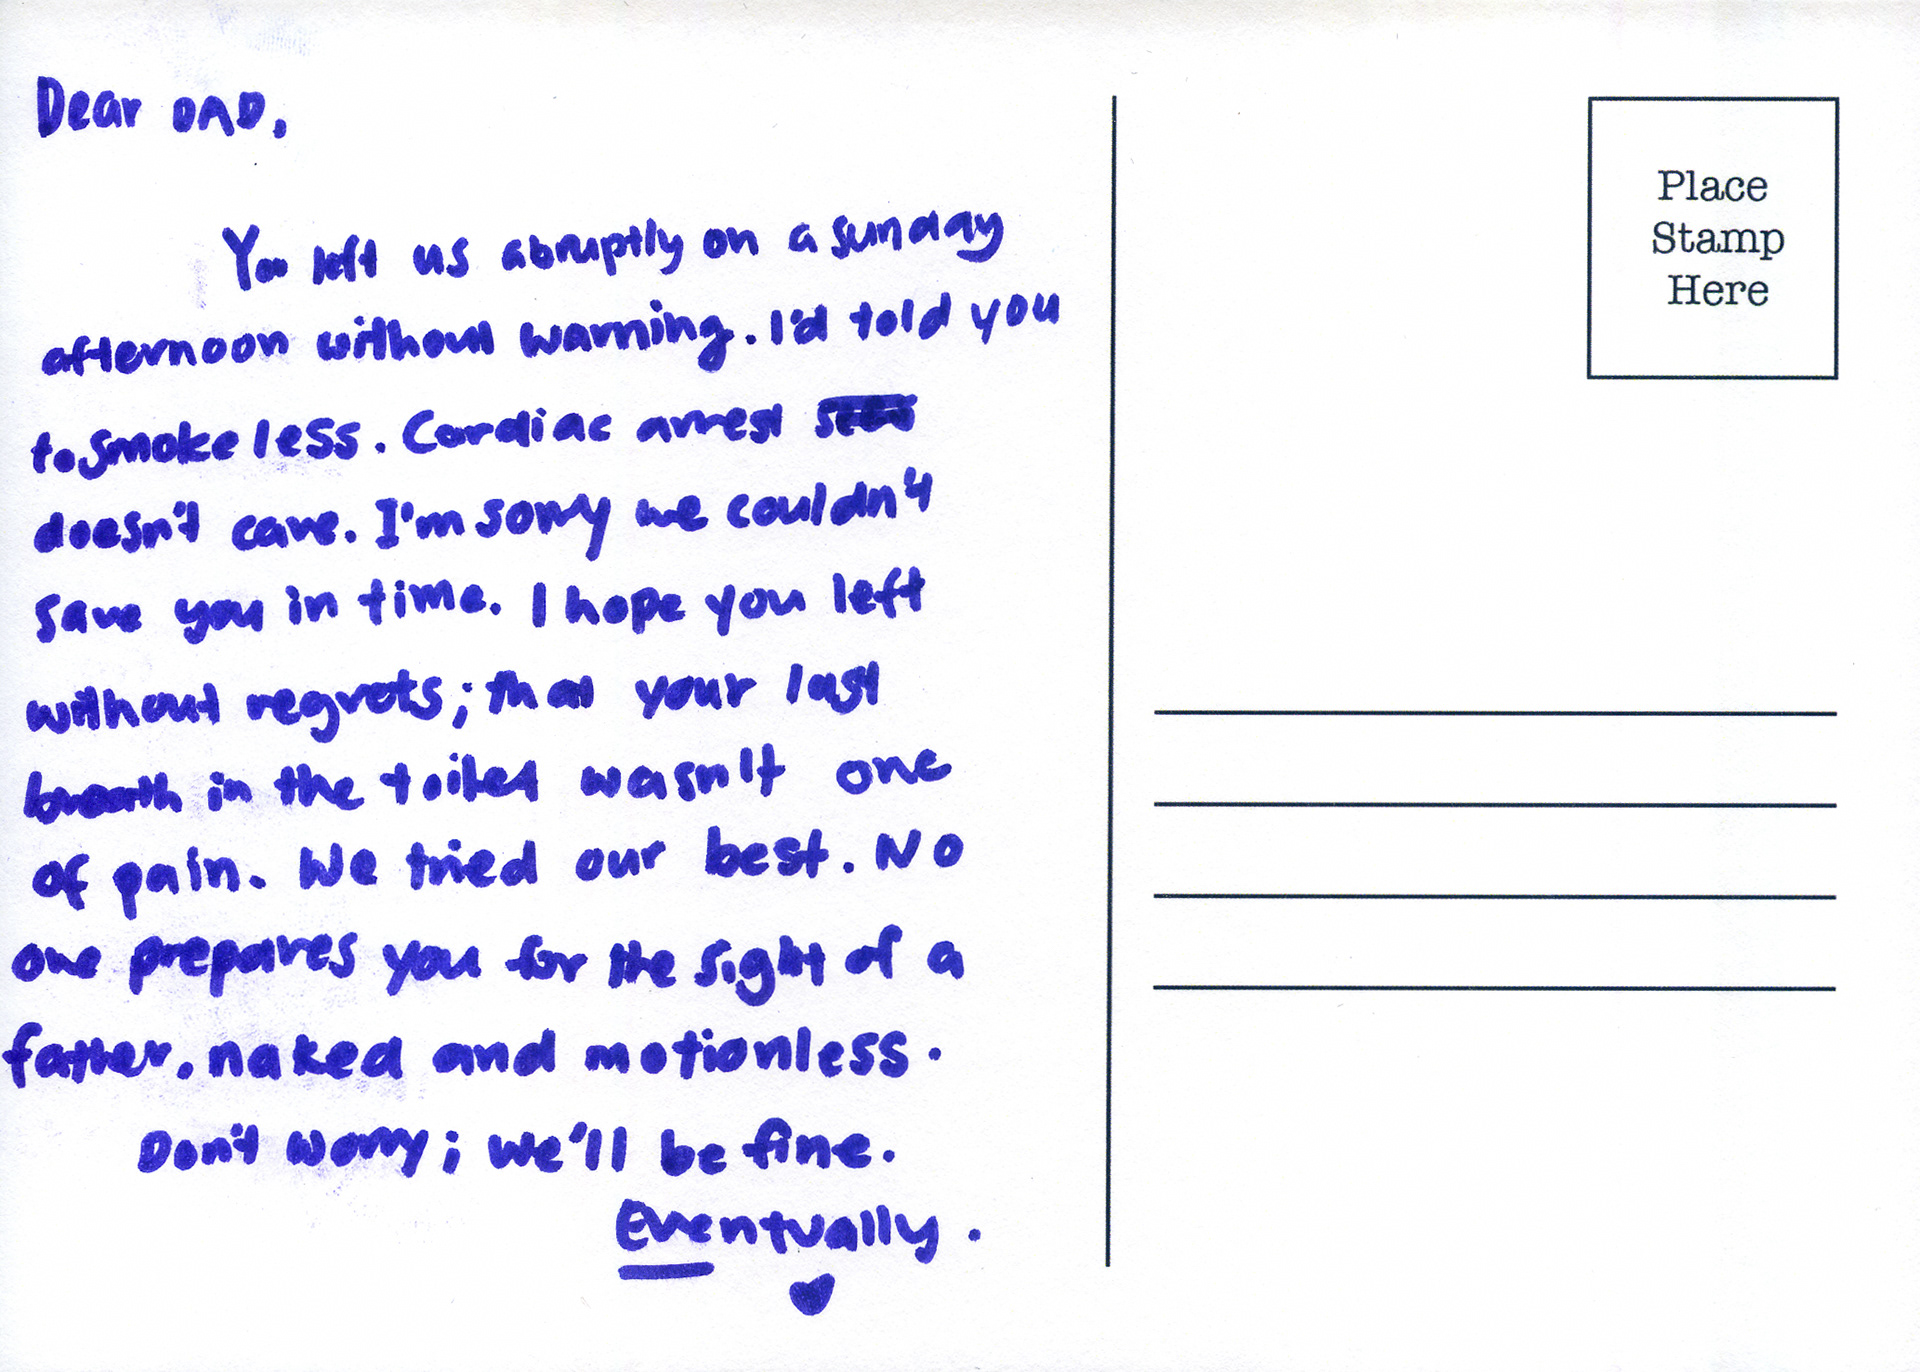 Dear DAD,
You left us abruptly on a sunday
afternoon without warning. I'd told you
to smoke less. Cardiac arrest
doesn't care. I'm sorry we couldn't
save you in time. I hope you left
without regrets; that your last
breath in the toilet wasn't one
of pain. We tried our best. No
one prepares you for the sight of a
father, naked and motionless.
Don't worry; we'll be fine.
Eventually.
Place
Stamp
Here